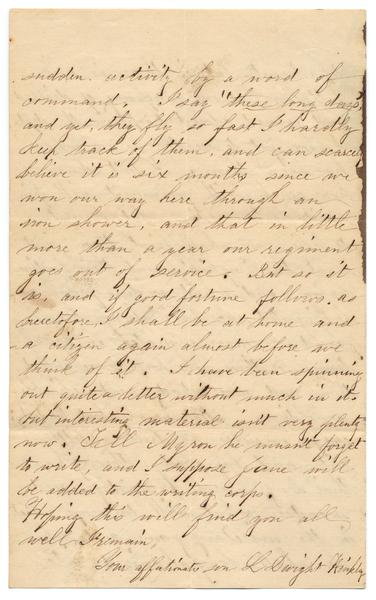 sudden activity by a word of
command. I say "these long days,"
and yet, they fly so fast I hardly
keep track of them, and can scarcely
believe it is six months since we
won our way here through an
iron shower, and that in little
more than a year our regiment
goes out of service. But so it
is, and if good fortune follows as
heretofore, I shall be at home and
a citizen again almost before we
think of it. I have been spinning
out quite a letter without much in it
but interesting material isn't very plenty
now. Tell Myron he musn't forget
to write, and I suppose Jane will
be added to the writing corps.
Hoping this will find you all
well I remain
Your affectionate son L Dwight